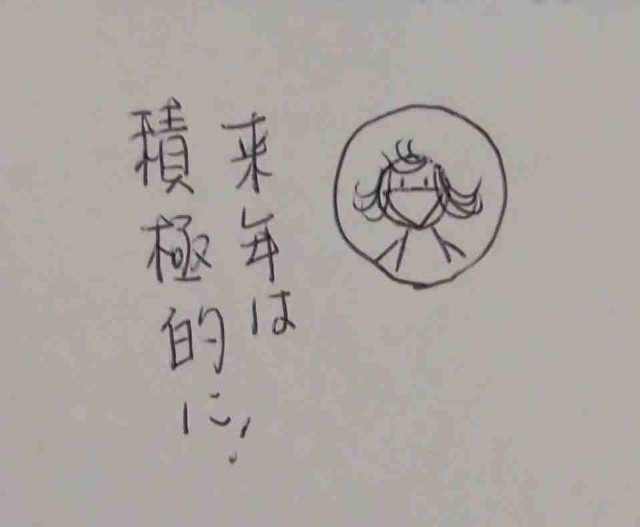 来年は
積極的に!